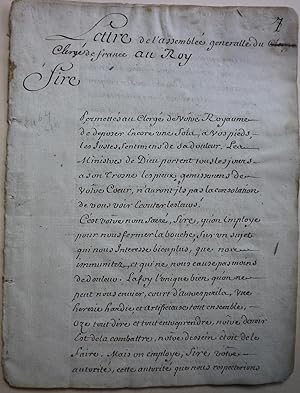 7
Lettre de l'assemblée generalle du Clergé
Clergé de france au Roy
Sire
Permettés au Clergé de Votre Royaume
de deposer Encore une fois, a Vos pieds
les Justes Sentimens de Sa douleur. Les
Ministres de Dieu portent tous les jours
a son Trosne les pieux gemissemens de
Votre Coeur, n'auront ils pas la consolation
de vous voir Ecouter les leurs!
C'est votre nom Sacré, Sire, qu'on Employe
pour nous fermer la bouche, Sur un Sujet
qui nous Interesse bien plus, que nos
immunitez, et qui ne nous cause pas moins
de douleur. La foy l'unique bien, qu'on ne
peut nous envier, court d'affreux perils, une
heresie hardie et artificieuse tout ensemble,
oze tout dire et tout entreprendre, nôtre devoir
Est de la combattre, notre dessein étoit de le
faire. Mais on employe, Sire votre
autorité, cette autorité que nous respecterons